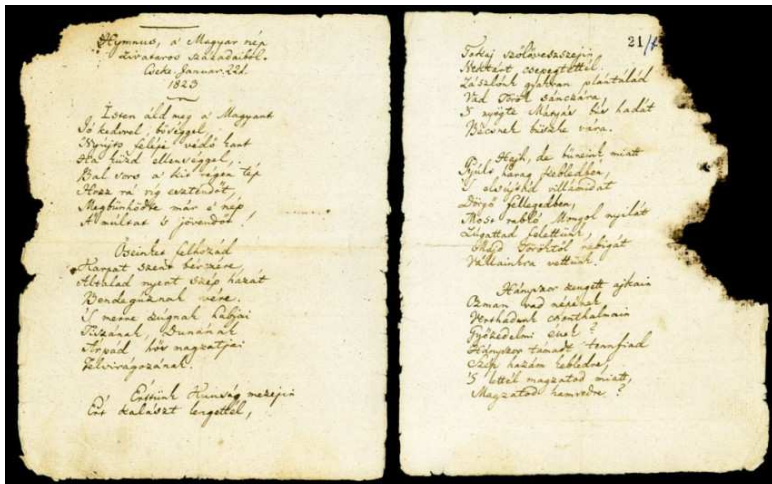 Hymnus, a' Magyar nép
zivataros századaiból.
Cseke, Januar. 22d.
1823
Isten áld meg a' Magyart
Jó kedvvel, bőséggel,
Nyújts feléje védő kart
Ha küzd ellenséggel,
Bal sors a' kit régen tép
Hozz rá víg esztendőt,
Megbünhödte már e' nép
A' múltat 's jövendőt!
Őseinket felhozád
Kárpát szent bérczére,
Általad nyert szép hazát
Bendegúznak vére.
'S merre zúgnak habjai
Tiszának, Dunának
Árpád hős magzatjai
Felvirágozának.
Értünk Kunság mezejin
Ért kalászt lengettél,
21/
Tokaj szőlővesszejin
Nektárt csepegtettél.
Zászlónk gyakran plántálád
Vad Török sánczára
'S nyögte Mátyás bús hadát
Bécsnek büszke vára.
Hajh, de bűneink miatt
Gyúlt harag kebledben,
'S elsújtád villámidat
Dörgő fellegedben,
Most rabló Mongol nyilát
Zúgattad felettünk,
Majd Töröktől rabigát
Vállainkra vettünk.
Hányszor zengett ajkain
Ozman vad népének
Vert hadunk csonthalmain
Győzedelmi ének?
Hányszor támadt tennfiad
Szép hazám kebledre,
'S lettél magzatod miatt,
Magzatod hamvedre?